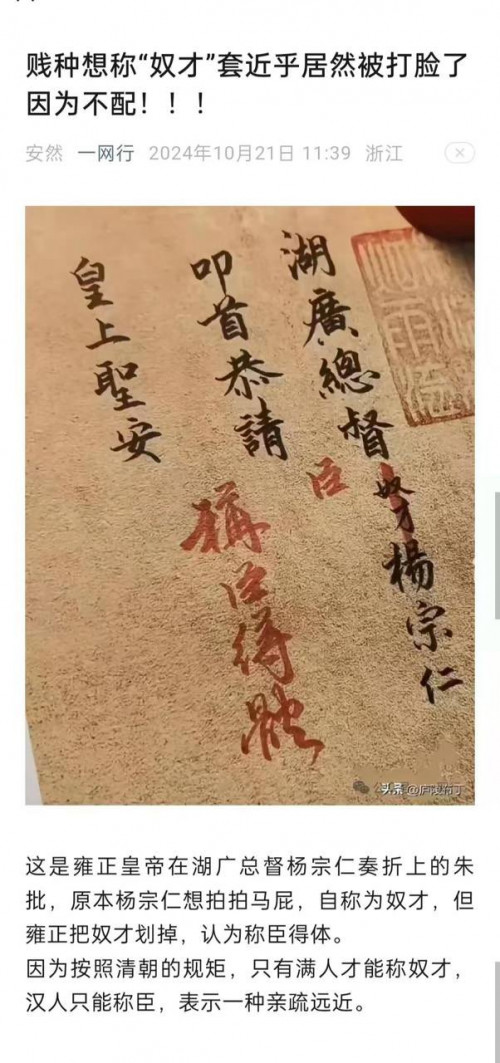 贱种想称“奴才”套近乎居然被打脸了
因为不配！！！
安然 一网行 2024年10月21日 11:39 浙江
湖廣總督奴才楊宗仁
臣
叩首恭請
稱臣得體
皇上聖安
头条@庐陵布丁
这是雍正皇帝在湖广总督杨宗仁奏折上的朱
批，原本杨宗仁想拍拍马屁，自称为奴才，但
雍正把奴才划掉，认为称臣得体。
因为按照清朝的规矩，只有满人才能称奴才，
汉人只能称臣，表示一种亲疏远近。